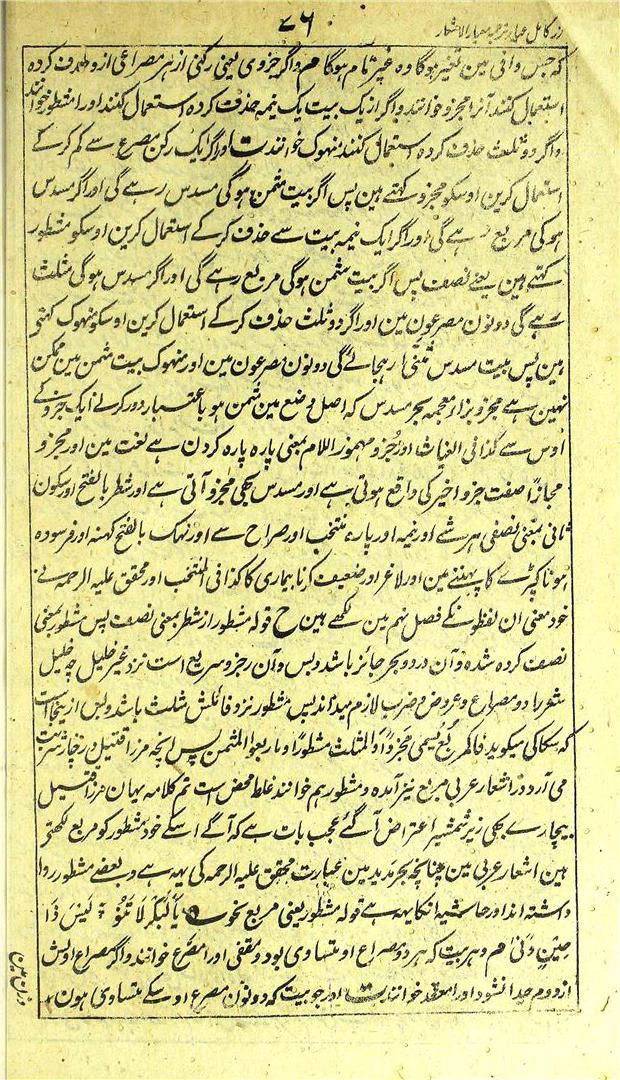 زر کامل عیار ترجمہ معیار الاشعار
۷۶
کہ جس وافی مین تغیر ہوگا وہ غیر تام ہوگا م واگر جزوی یعنی رکنی از ہر مصراعی ازو حذف کردہ
استعمال کنند آنرا مجزو خوانند واگر از یک بیت یک نیمہ حذف کردہ استعمال کنند اورا مشطور خوانند
واگر دو ثلث حذف کردہ استعمال کنند منہوک خوانند ت اور اگر ایک رکن مصرع سے کم کرکے
استعمال کرین اوسکو مجزو کہتے ہین پس اگر بیت مثمن ہوگی مسدس رہے گی اور اگر مسدس
ہوگی مربع رہے گی اور اگر ایک نیمہ بیت سے حذف کرکے استعمال کرین اوسکو مشطور
کہتے ہین یعنے نصف پس اگر بیت مثمن ہوگی مربع رہے گی اور اگر مسدس ہوگی مثلث
رہے گی دونون مصرعون مین اور اگر دو ثلث حذف کرکے استعمال کرین اوسکو منہوک کہتے
ہین پس بیت مسدس مثنی رہجائے گی دونون مصرعون مین اور منہوک بیت مثمن مین ممکن
نہین ہے مجزو بزاء معجمہ بحر مسدس کہ اصل وضع مین مثمن ہو باعتبار دور کرنے ایک جزو کے
اوس سے کذا فی الغیاث اور جزو مہموز اللام بمعنی پارہ پارہ کردن ہے لغت مین اور مجزو
مجازاً صفت جزو اخیر کی واقع ہوتی ہے اور مسدس بھی مجزو آتی ہے اور شطر بالفتح اور سکون
ثانی بمعنی نصفی ہر شے اور نیمہ اور پارہ منتخب اور صراح سے اور نہک بالفتح کہنہ اور فرسودہ
ہونا کپڑے کا پہننے مین اور لاغر اور ضعیف کرنا بیماری کا کذا فی المنتخب اور محقق علیہ الرحمہ نے
خود معنی ان لفظون کے فصل نہم مین لکھے ہین ح قولہ مشطور از شطر بمعنی نصف پس مشطور بمعنی
نصف کردہ شدہ و آن در دو بحر جائز باشد و بس و آن رجز و سریع است نزد غیر خلیل چہ خلیل
شعر را دو مصراع و عروض و ضرب لازم میداند پس مشطور نزد قائلش مثلث باشد و بس ازینجاست
کہ سکاکی میگوید فالمربع یسمی مجزوا والمثلث مشطورا و ما ربعوا المثمن پس انچہ مرزا قتیل در چار شربت
می آرد در اشعار عربی مربع نیز آمدہ و مشطور ہم خوانند غلط محض است تم کلامہ یہان مرزا قتیل
بیچارے بھی زیر شمشیر اعتراض آگئے عجب بات ہے کہ آگے اسکے خود مشطور کو مربع لکھتے
ہین اشعار عربی مین چنانچہ بحر مدید مین عبارت محقق علیہ الرحمہ کی یہہ ہے و بعضے مشطور روا
داشتہ اند اور حاشیہ انکا یہہ ہے قولہ مشطور یعنی مربع نحو یا لبکر لا تنوا لیس ذا
حین ونی م و ہر بیت کہ ہر دو مصراع او متساوی بود و مقفی اورا مصرع خوانند واگر مصراع اولش
از دوم جدا نشود اورا معقد خوانند ت اور جو بیت کہ دونون مصرع اوسکے متساوی ہون
وزن مین